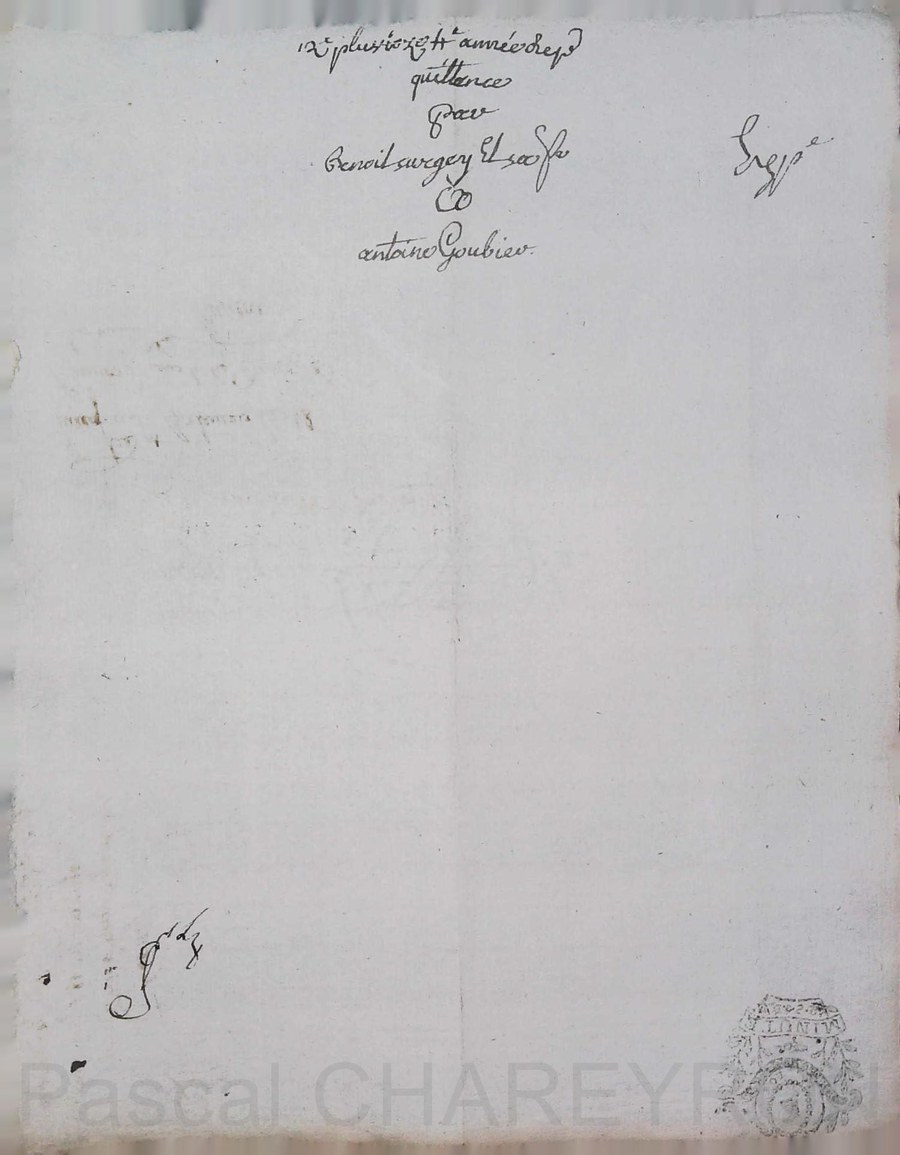 12e pluviose 4e année Rep
quittance
par
Benoit surgey Et sa fe
a
antoine Goubier.
Exp e
MINUT
Pascal CHAREYRON